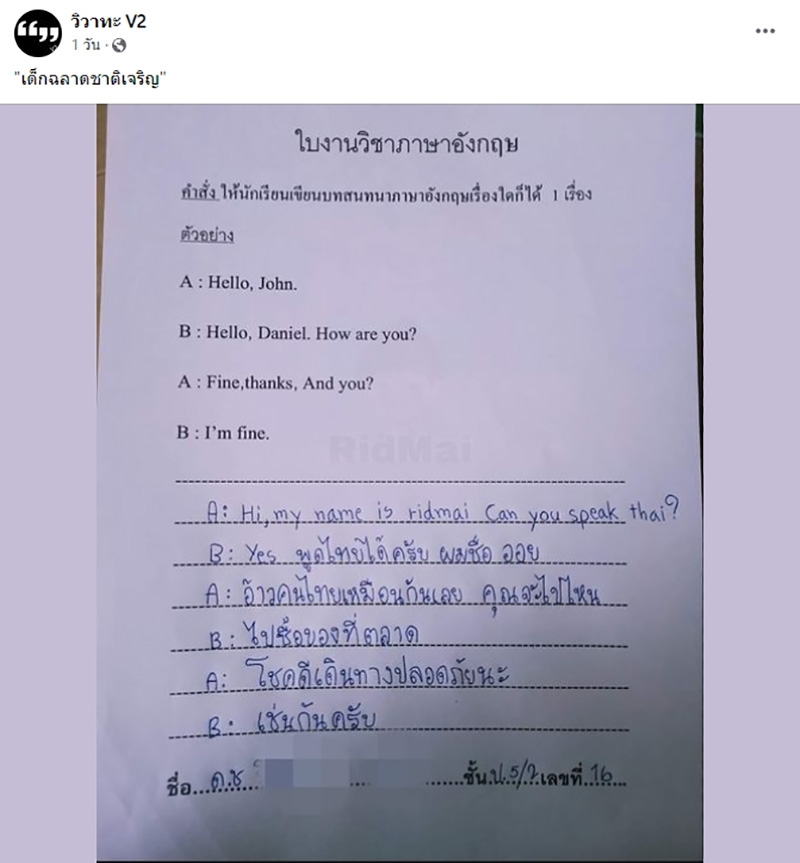 วิวาทะ V2
1 วัน ·
"เด็กฉลาดชาติเจริญ"
ใบงานวิชาภาษาอังกฤษ
คำสั่ง ให้นักเรียนเขียนบทสนทนาภาษาอังกฤษเรื่องใดก็ได้ 1 เรื่อง
ตัวอย่าง
A : Hello, John.
B : Hello, Daniel. How are you?
A : Fine,thanks, And you?
B : I'm fine.
RidMai
A: Hi, my name is ridmai Can you speak thai?
B: Yes พูดไทยได้ครับ ผมชื่อ ออย
A: อ๊าวคนไทยเหมือนกันเลย คุณจะไปไหน
B: ไปซื้อของที่ตลาด
A: โชคดีเดินทางปลอดภัยนะ
B: เช่นกันครับ
ชื่อ...ด.ช.......ชั้น.ป.5/2.เลขที่.16...